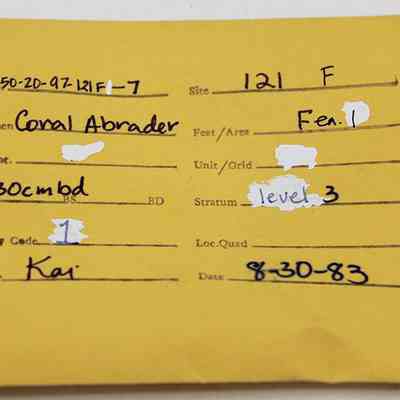 50-20-97-121F1-7 Site 121 F
en Coral Abrader Feat/Area Fea. 1
Unit/Grid
30cmbd BS BD Stratum level 3
Code 1 Loc.Quad
Kai Date 8-30-83